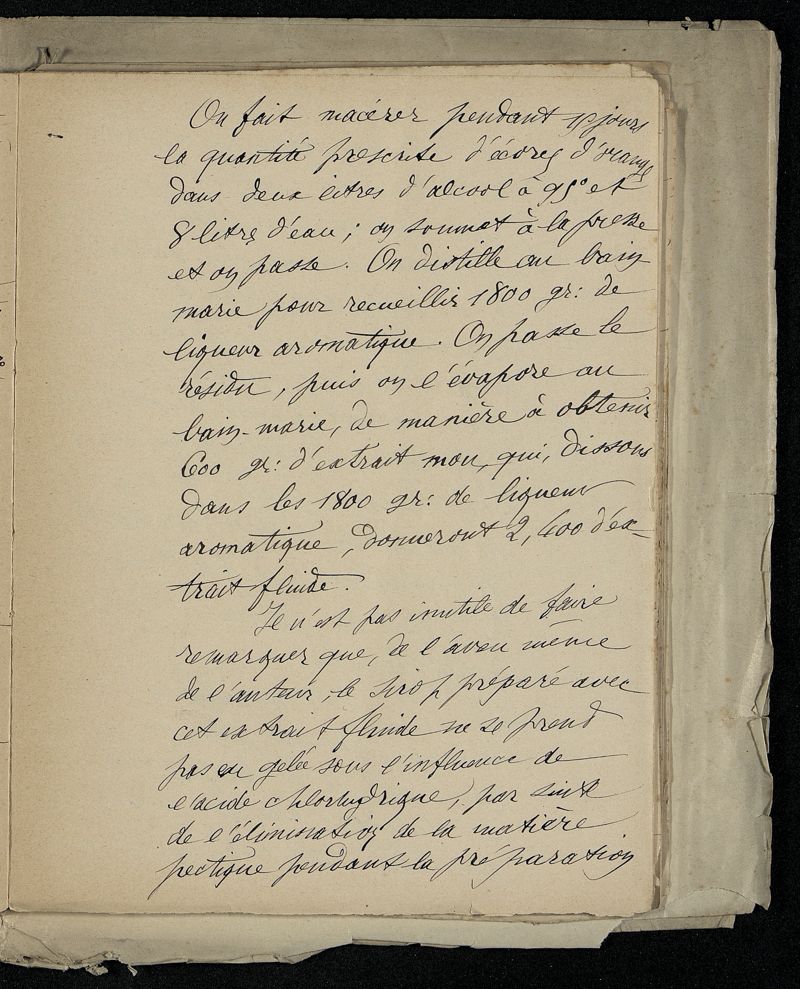 On fait macérer pendant jours
la quantité prescrite d'écorces d'orange
dans deux litres d'alcool à 95° et
8 litres d'eau ; on soumet à la presse
et on passe. On distille au bain
marie pour recueillir 1800 gr: de
liqueur aromatique. On passe le
résidu, puis on l'évapore au
bain-marie, de manière à obtenir
600 gr: d'extrait mou, qui, dissous
dans les 1800 gr: de liqueur
aromatique, donneront 2,400 d'ex-
trait fluide.
Il n'est pas inutile de faire
remarquer que, de l'aveu même
de l'auteur, le sirop préparé avec
cet extrait fluide ne se prend
pas en gelée sous l'influence de
l'acide chlorhydrique, par suite
de l'élimination de la matière
pectique pendant la préparation